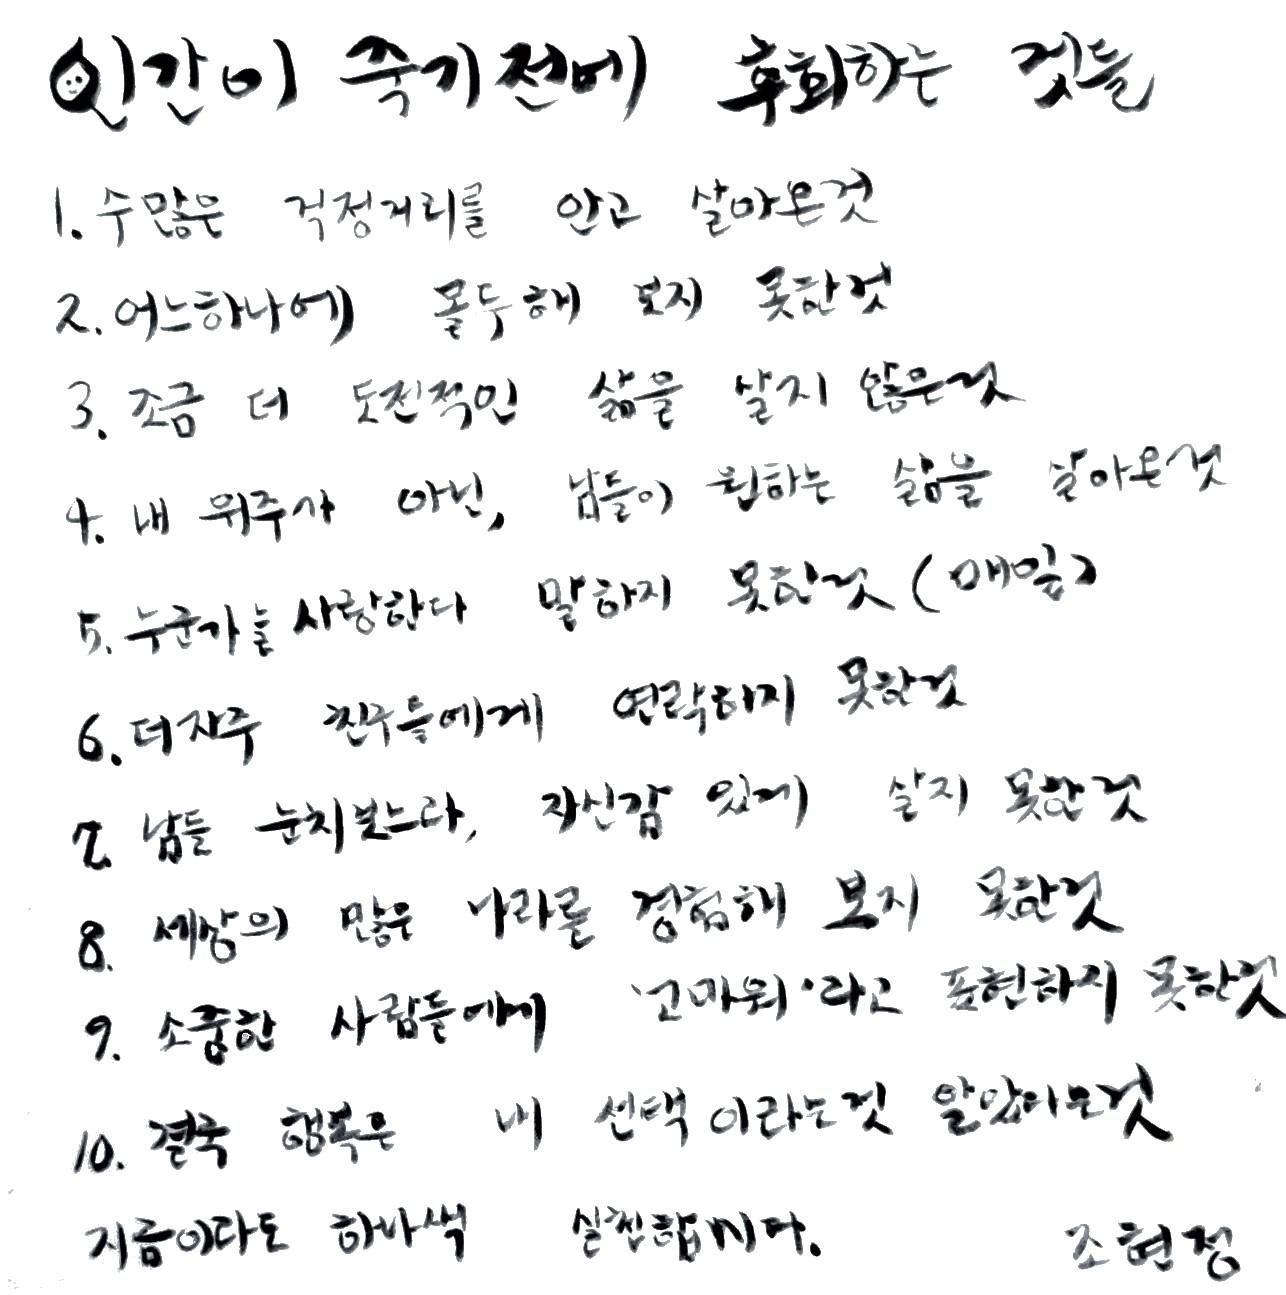 인간이 죽기전에 후회하는 것들
1. 수많은 걱정거리를 안고 살아온것
2. 어느하나에 몰두해 보지 못한것
3. 조금 더 도전적인 삶을 살지 않은것
4. 내 위주가 아닌, 남들이 원하는 삶을 살아온것
5. 누군가를 사랑한다 말하지 못한것 (매일)
6. 더자주 친구들에게 연락하지 못한것
7. 남들 눈치보느라, 자신감 있게 살지 못한것
8. 세상의 많은 나라를 경험해 보지 못한것
9. 소중한 사람들에게 '고마워'라고 표현하지 못한것
10. 결국 행복은 내 선택 이라는것
지금이라도 하나씩 실천합시다. 조현정